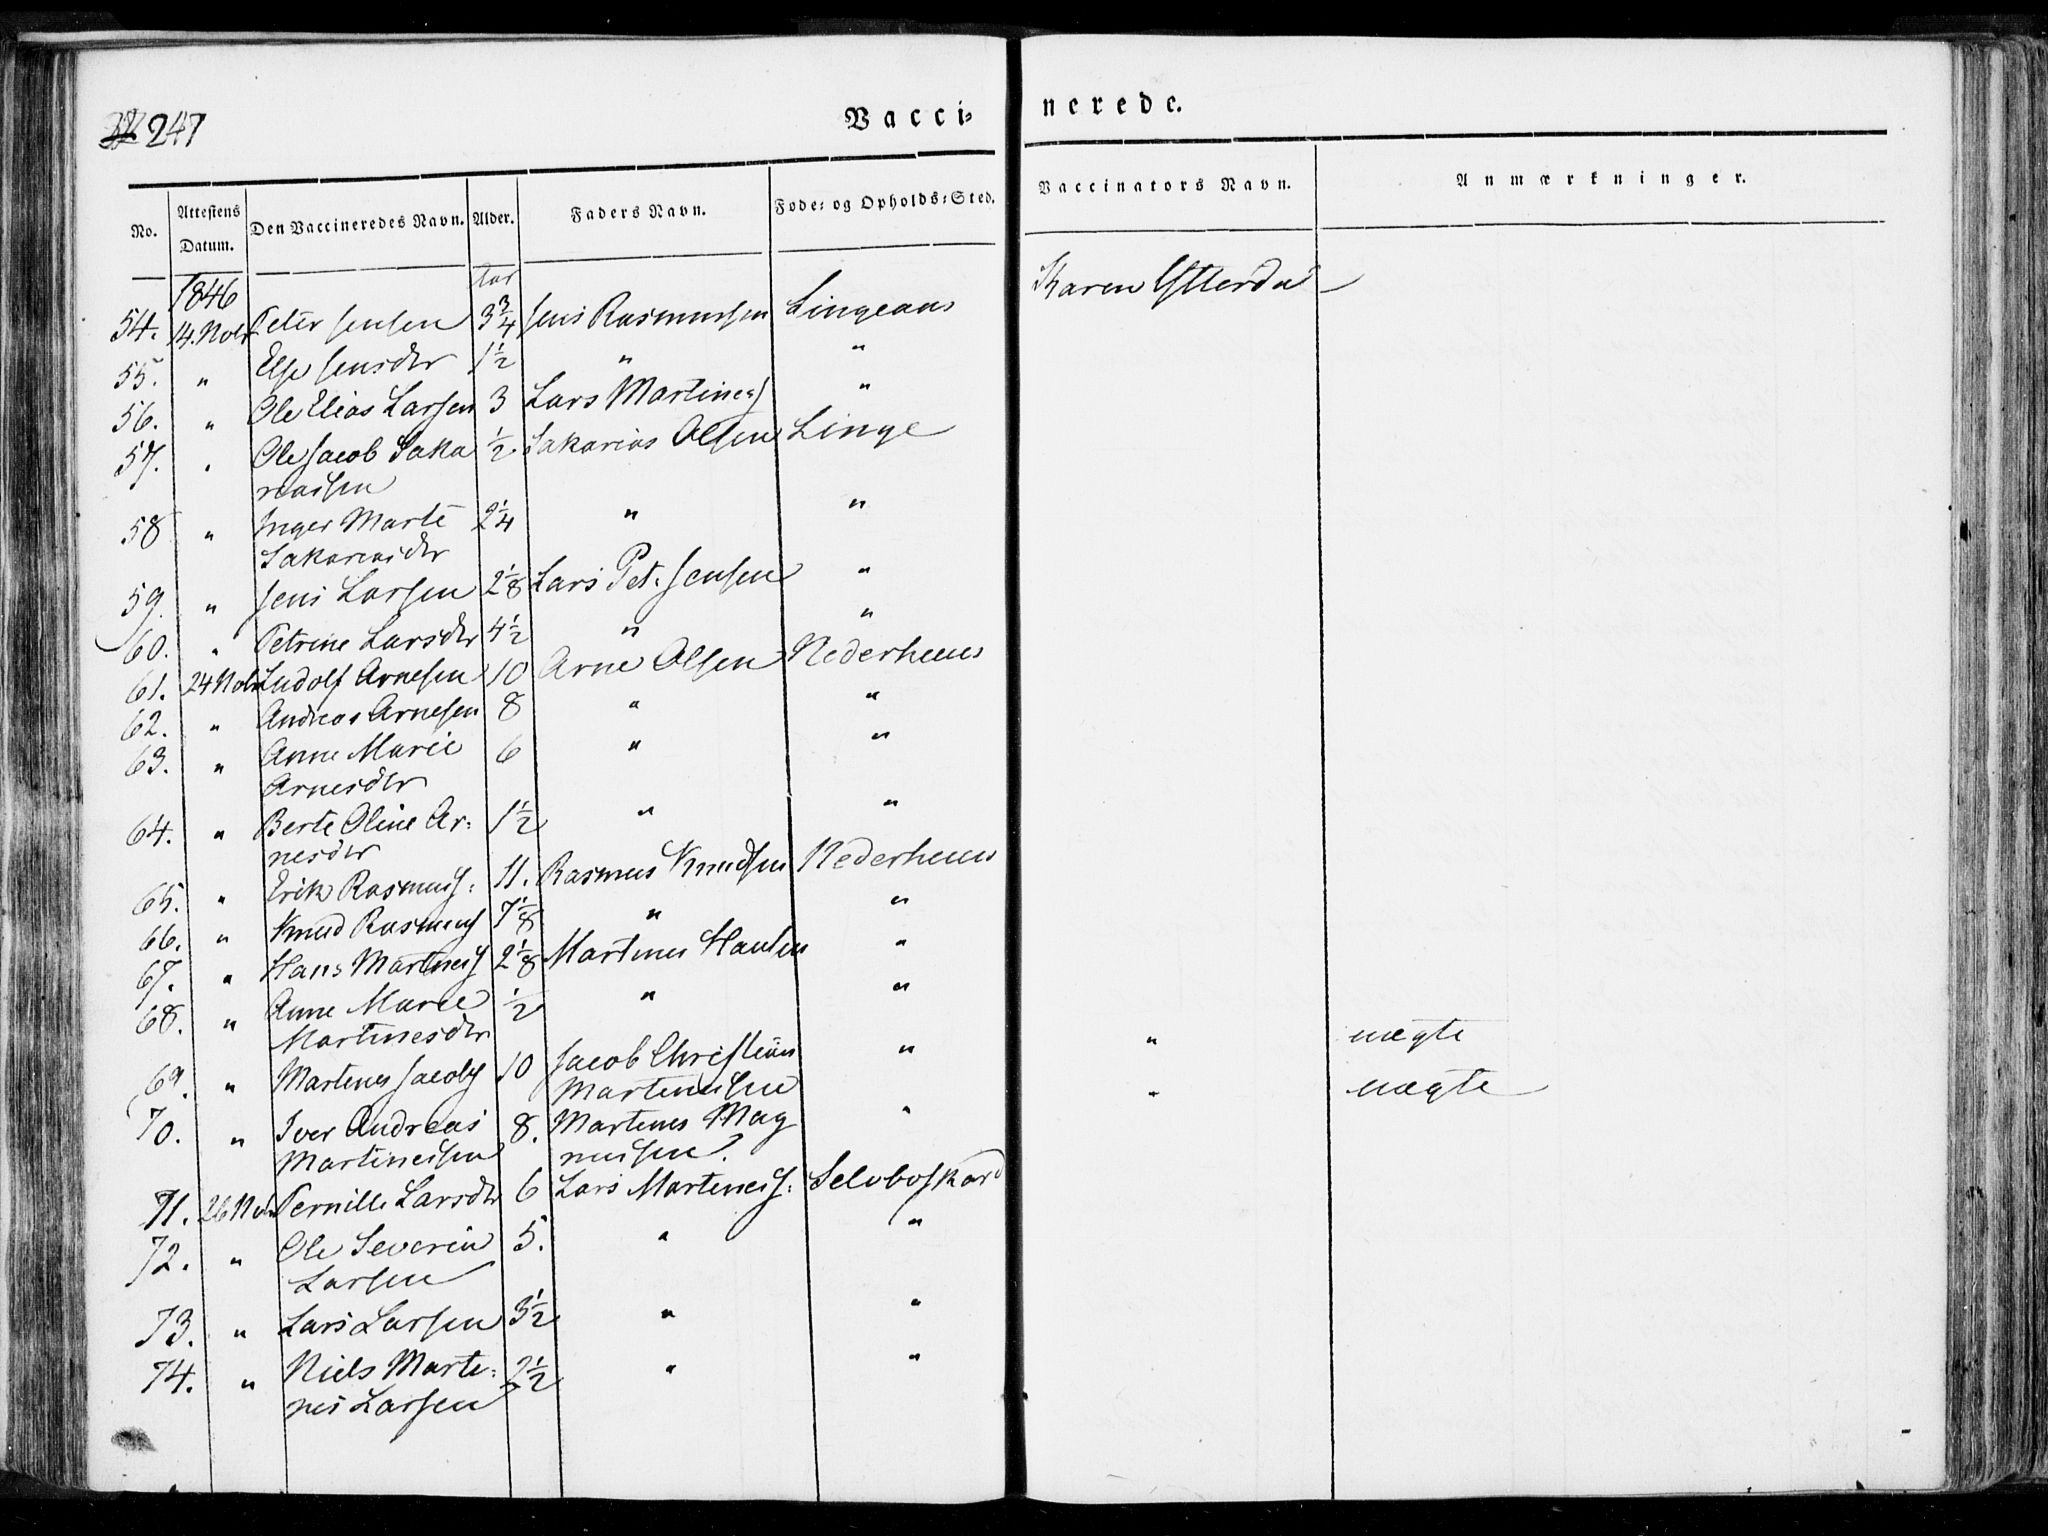 247
Vacci- nerede.
No. Attestens Datum. Den Vaccineredes Navn. Alder. Faders Navn. Føde- og Opholds-Sted. Vaccinators Navn. Anmærkninger.
1846 Aar
54. 14. Novbr Peter Jensen 3 3/4 Jens Rasmussen Lingeaas Karen Ytterda
55. " Else Jensdtr 1 1/2 " "
56. " Ole Elias Larsen 3 Lars Martines "
57. " Ole Jacob Saka 1/2 Sakarias Olsen Linge
reassen
58 " Inger Marte 2 1/4 " "
Sakareasdtr
59. " Jens Larsen 2 1/8 Lars Pet. Jensen "
60. " Petrine Larsdtr 4 1/2 " "
61. 24 Nobr Ludolf Arnesen 10 Arne Olsen Nederheens
62. " Andreas Arnesen 8 " "
63. " Anne Marie 6 " "
Arnesdtr
64. " Berte Oline Ar- 1 1/2 " "
nesdtr
65. " Erik Rasmuss: 11. Rasmus Knudsen Nederheens
66. " Knud Rasmuss 7 1/8 " "
67. " Hans Martines 2 1/8 Martines Hansen "
68. " Anne Marie 1/2 " "
Martinesdtr
69. " Martines Jacobs 10 Jacob Christian " " uægte
Martinussen
70. " Iver Andreas 8. Martines Mag " " uægte
Martinessen nussen.
71. 26 Nobr Pernille Larsdtr 6 Lars Martiness: Selvboskard
72. " Ole Severin 5. " "
Larsen
73. " Lars Larsen 3 1/2 " "
74. " Niels Marti- 2 1/2 " "
nes Larsen